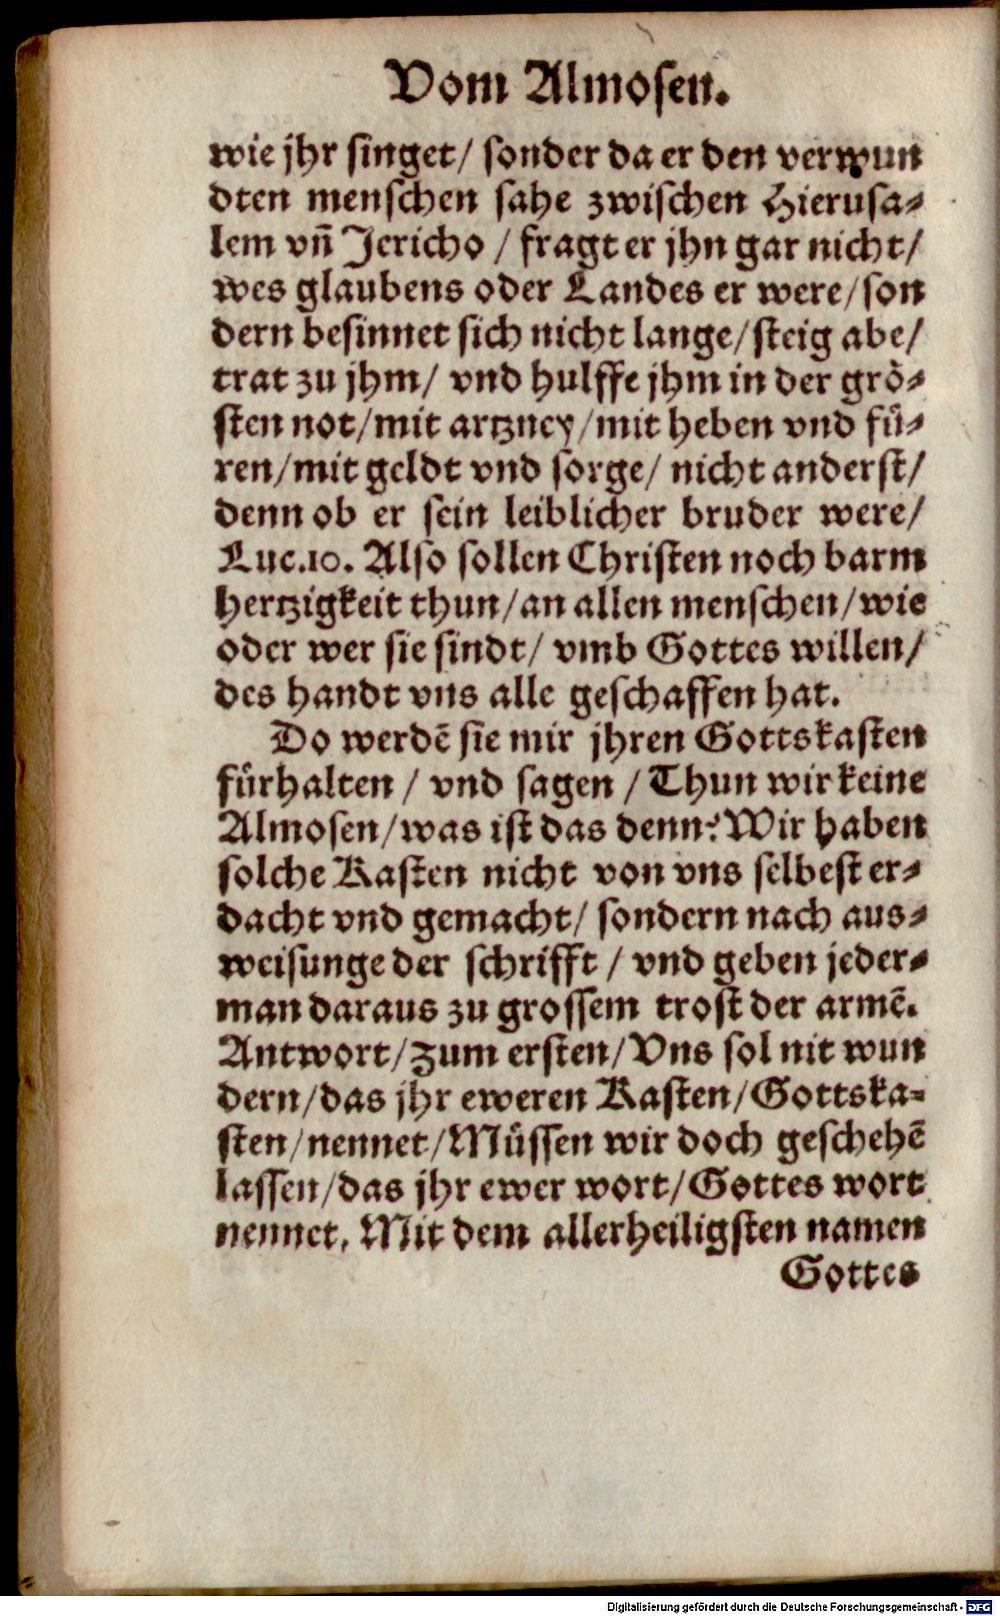 Vom Almosen.
wie jhr singet/ sonder da er den verwun
dten menschen sahe zwischen Hierusa⸗
lem vñ Jericho / fragt er jhn gar nicht/
wes glaubens oder Landes er were/son
dern besinnet sich nicht lange/steig abe/
trat zu jhm/ vnd hulffe jhm in der grö⸗
sten not/mit artzney/mit heben vnd fü⸗
ren/mit geldt vnd sorge/ nicht anderst/
denn ob er sein leiblicher bruder were/
Luc.10. Also sollen Christen noch barm
hertzigkeit thun/an allen menschen/wie
oder wer sie sindt/ vmb Gottes willen/
des handt vns alle geschaffen hat.
Do werdē sie mir jhren Gottskasten
fürhalten / vnd sagen / Thun wir keine
Almosen/was ist das denn? Wir haben
solche Kasten nicht von vns selbest er⸗
dacht vnd gemacht/ sondern nach aus⸗
weisunge der schrifft / vnd geben jeder⸗
man daraus zu grossem trost der armē.
Antwort/zum ersten/Vns sol nit wun
dern/das jhr eweren Kasten/Gottska⸗
sten/nennet/Müssen wir doch geschehē
lassen/das jhr ewer wort/Gottes wort
nennet, Mit dem allerheiligsten namen
Gottes
Digitalisierung gefördert durch die Deutsche Forschungsgemeinschaft - DFG